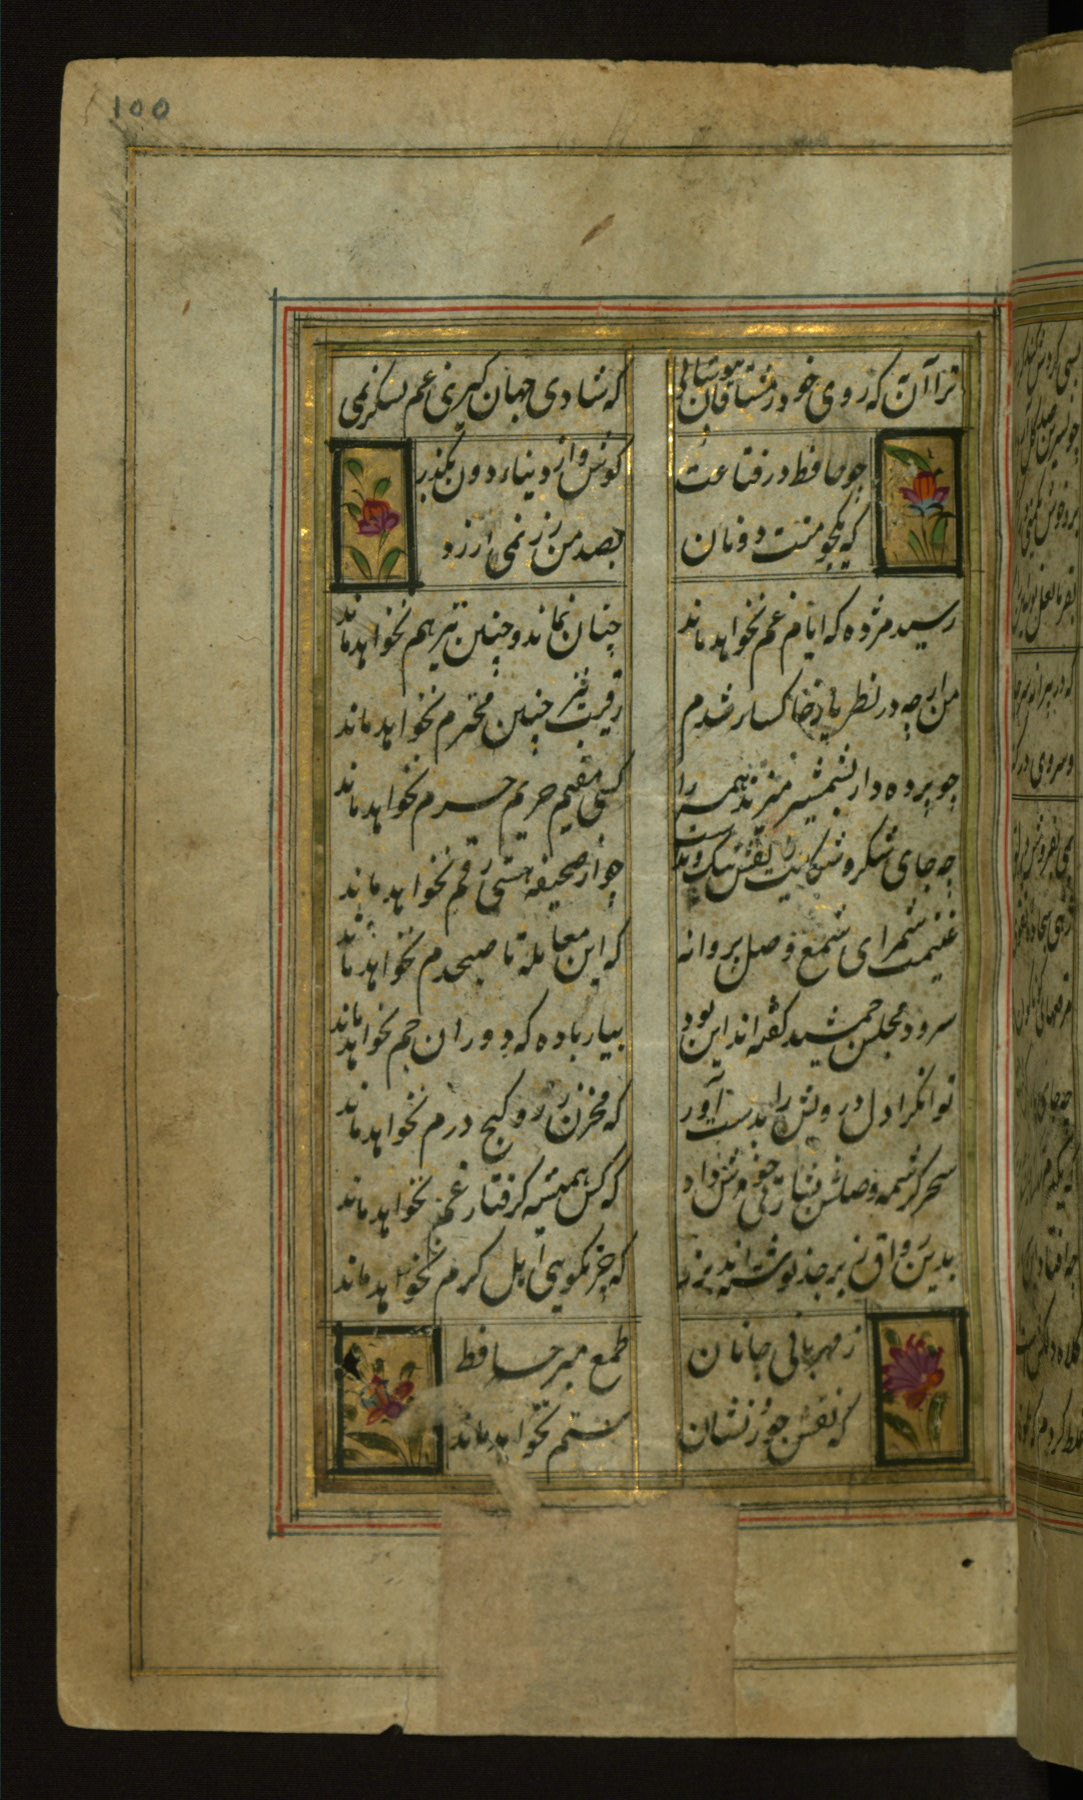 100
ترا آن به که روی خود ز مشتاقان بپوشانی
که شادی جهان گیری غم لشکر نمی
چو حافظ در قناعت
کوش و از دنیای دون بگذر
که یکجو منت دونان
بصد من زر نمی ارزد
رسید مژده که ایام غم نخواهد ماند
چنان نماند و چنین نیز هم نخواهد ماند
من ار چه در نظر یار خاکسار شدم
رقیب نیز چنین محترم نخواهد ماند
چو پرده دار بشمشیر میزند همه را
کسی مقیم حریم حرم نخواهد ماند
چه جای شکر و شکایت ز نقش نیک و بدست
چو از صحیفه هستی رقم نخواهد ماند
غنیمت شمر ای شمع وصل پروانه
که این معامله تا صبحدم نخواهد ماند
سرود مجلس جمشید گفته اند این بود
بیار باده که دوران جم نخواهد ماند
توانگرا دل درویش را بدست آور
که مخزن زر و گنج درم نخواهد ماند
سحر کرشمه وصلش بشارتی خوش داد
که کس همیشه گرفتار غم نخواهد ماند
بدین رواق زبرجد نوشته اند بزر
که جز نکویی اهل کرم نخواهد ماند
ز مهربانی جانان
طمع مبر حافظ
که نقش جور و نشان
ستم نخواهد ماند